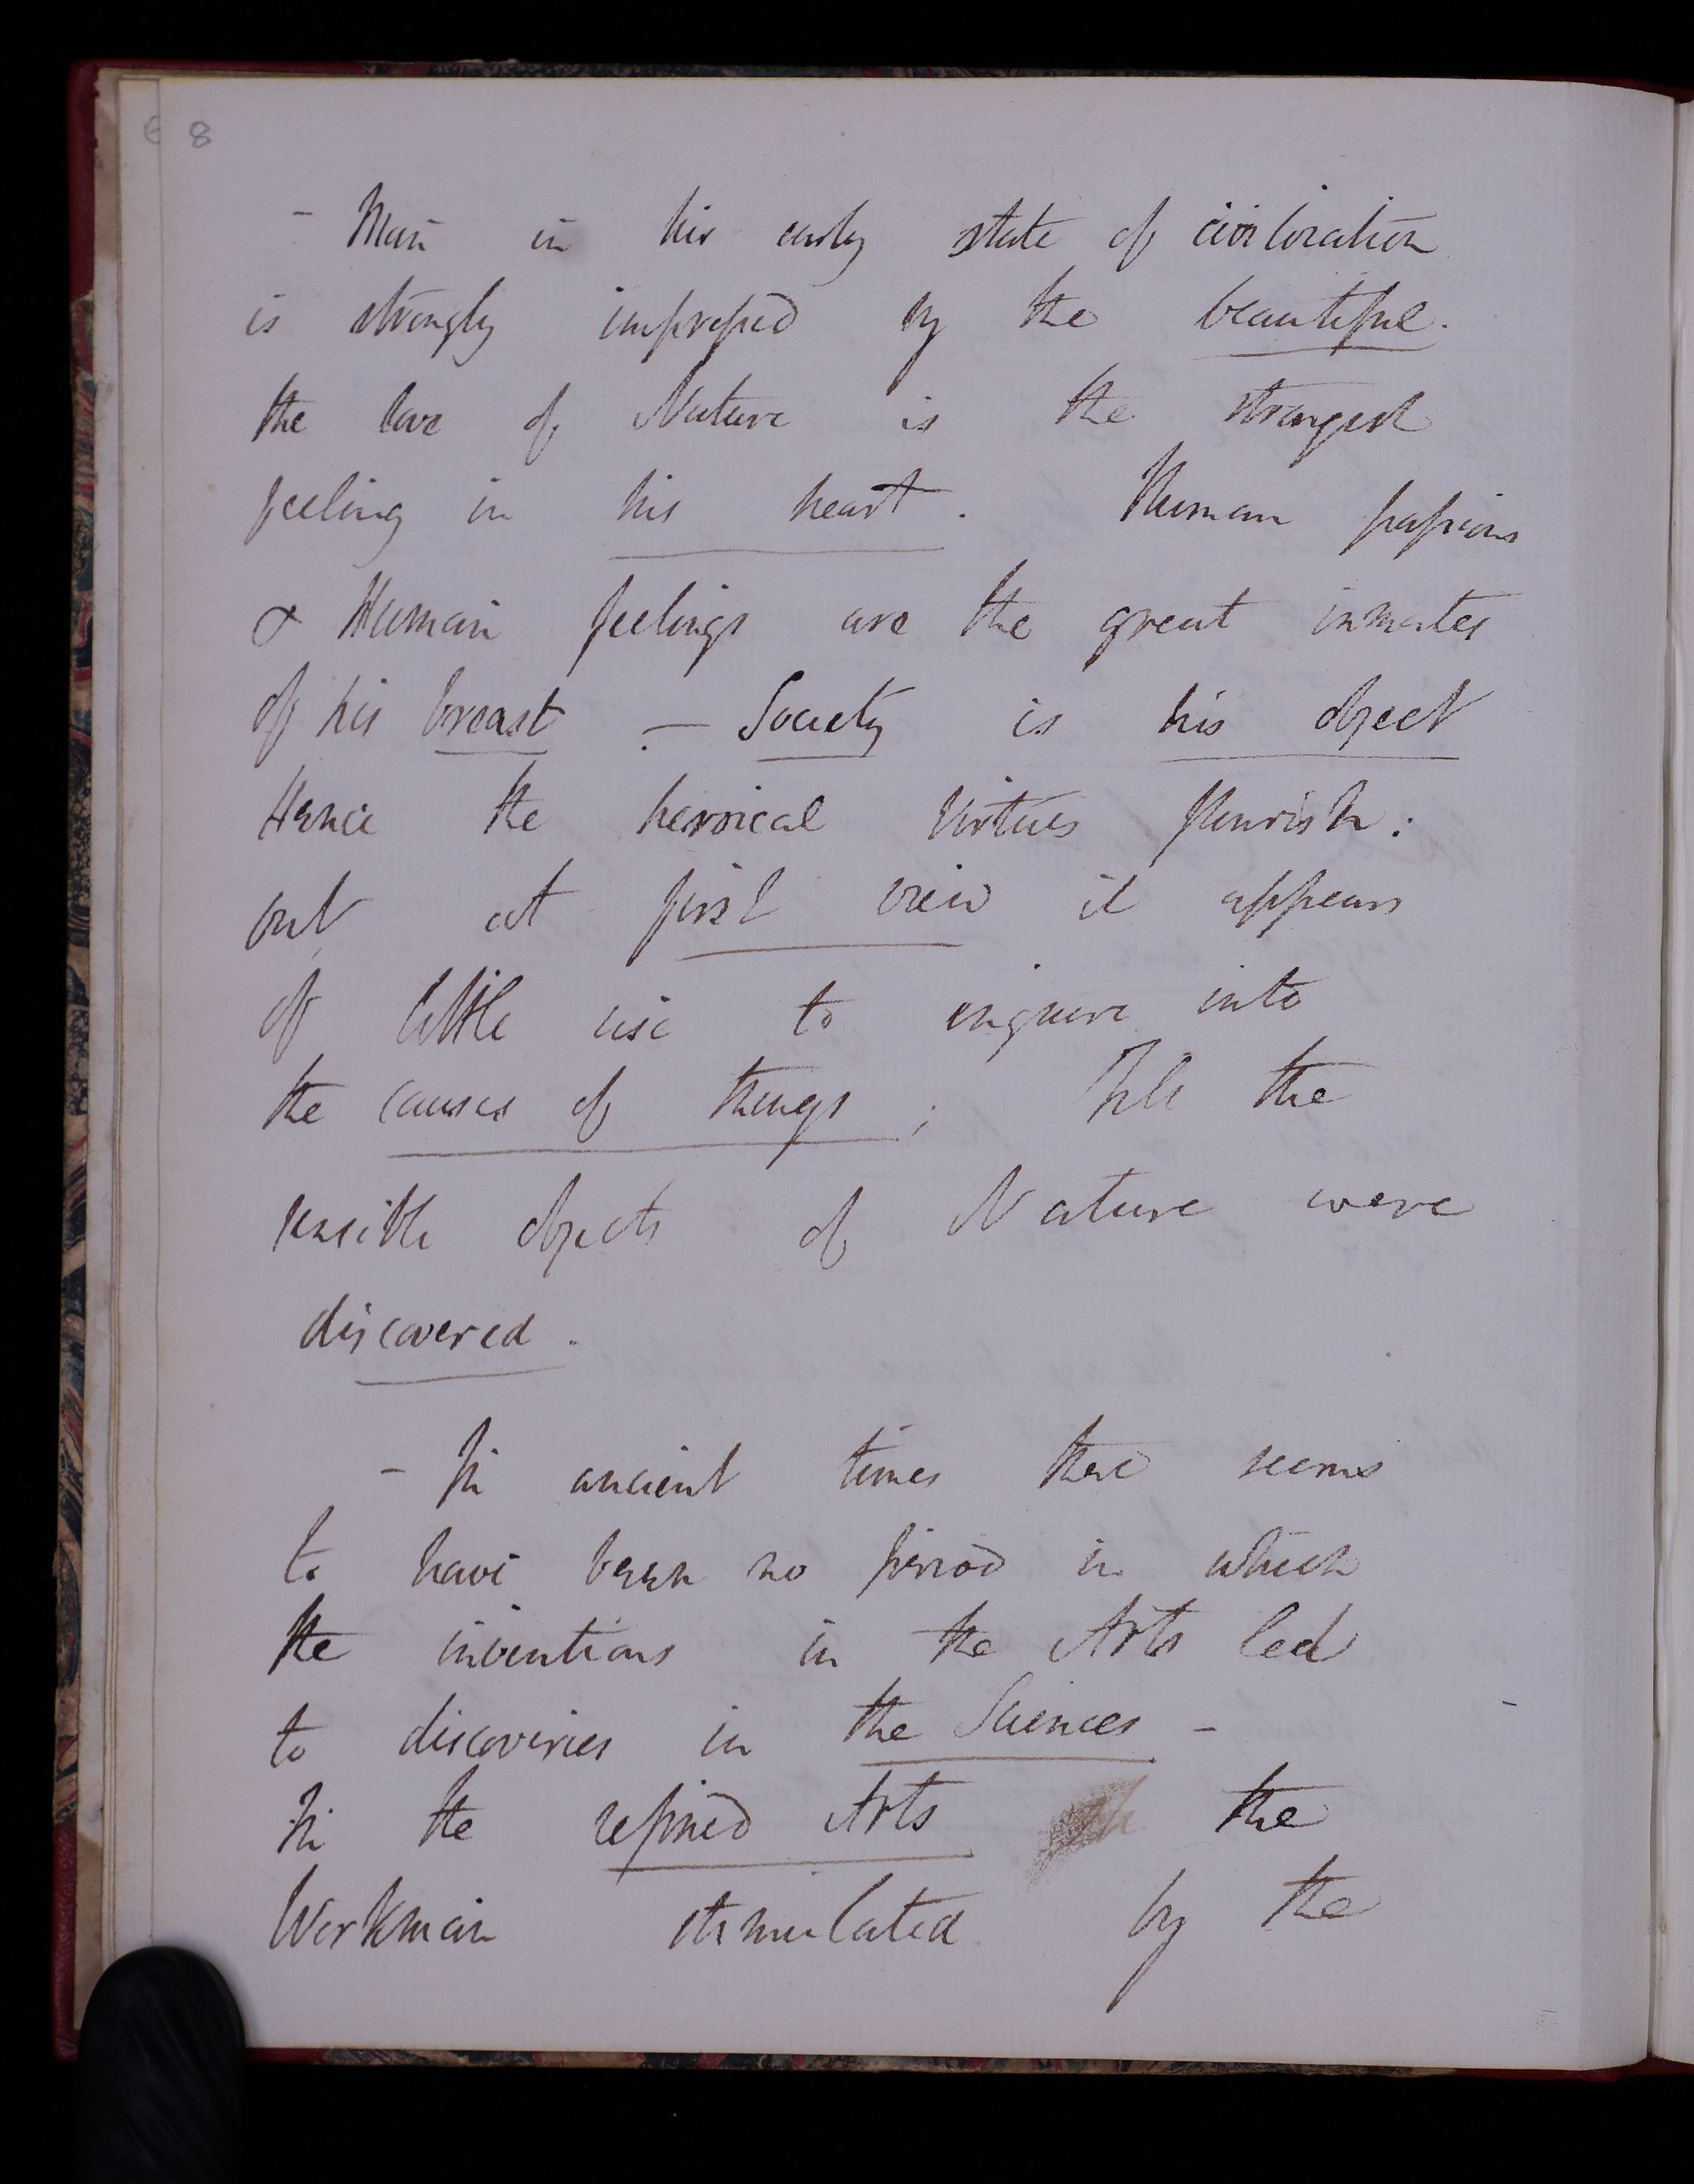 8
- Man in his early state of civilization
is strongly impressed by the beautiful.
the love of Nature is the strongest
feeling in his heart. Human passions
& Human feelings are the great inmates
of his breast. - Society is his object
Hence the heroical virtues flourish:
but at first view it appears
of little use to enquire into
the causes of things; the
sensible objects of Nature were
discovered.
- In ancient times there seems
to have been no period in which
the inventions in the Arts led
to discoveries in the Sciences -
In the refined Arts the
Workman stimulated by the